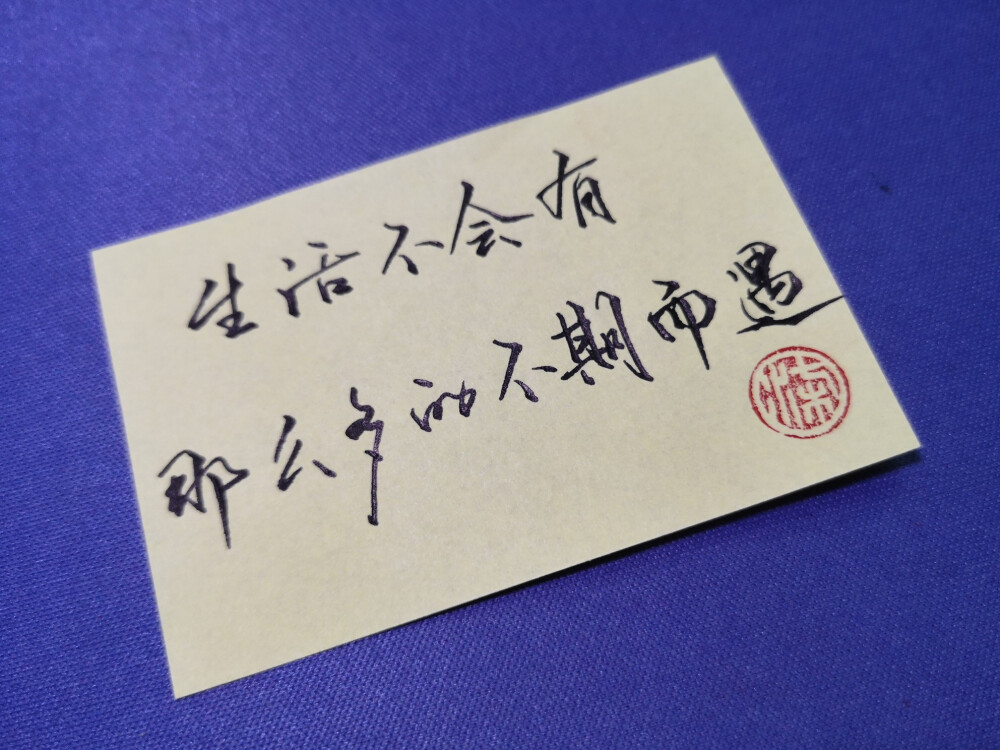 生活不会有
那么多的不期而遇